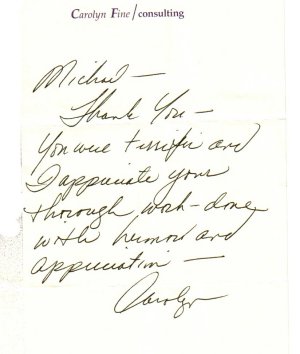 Carolyn Fine/consulting
Michael —
Thank You —
You were terrific and
I appreciate your
thorough work - done
with humor and
appreciation —
Carolyn